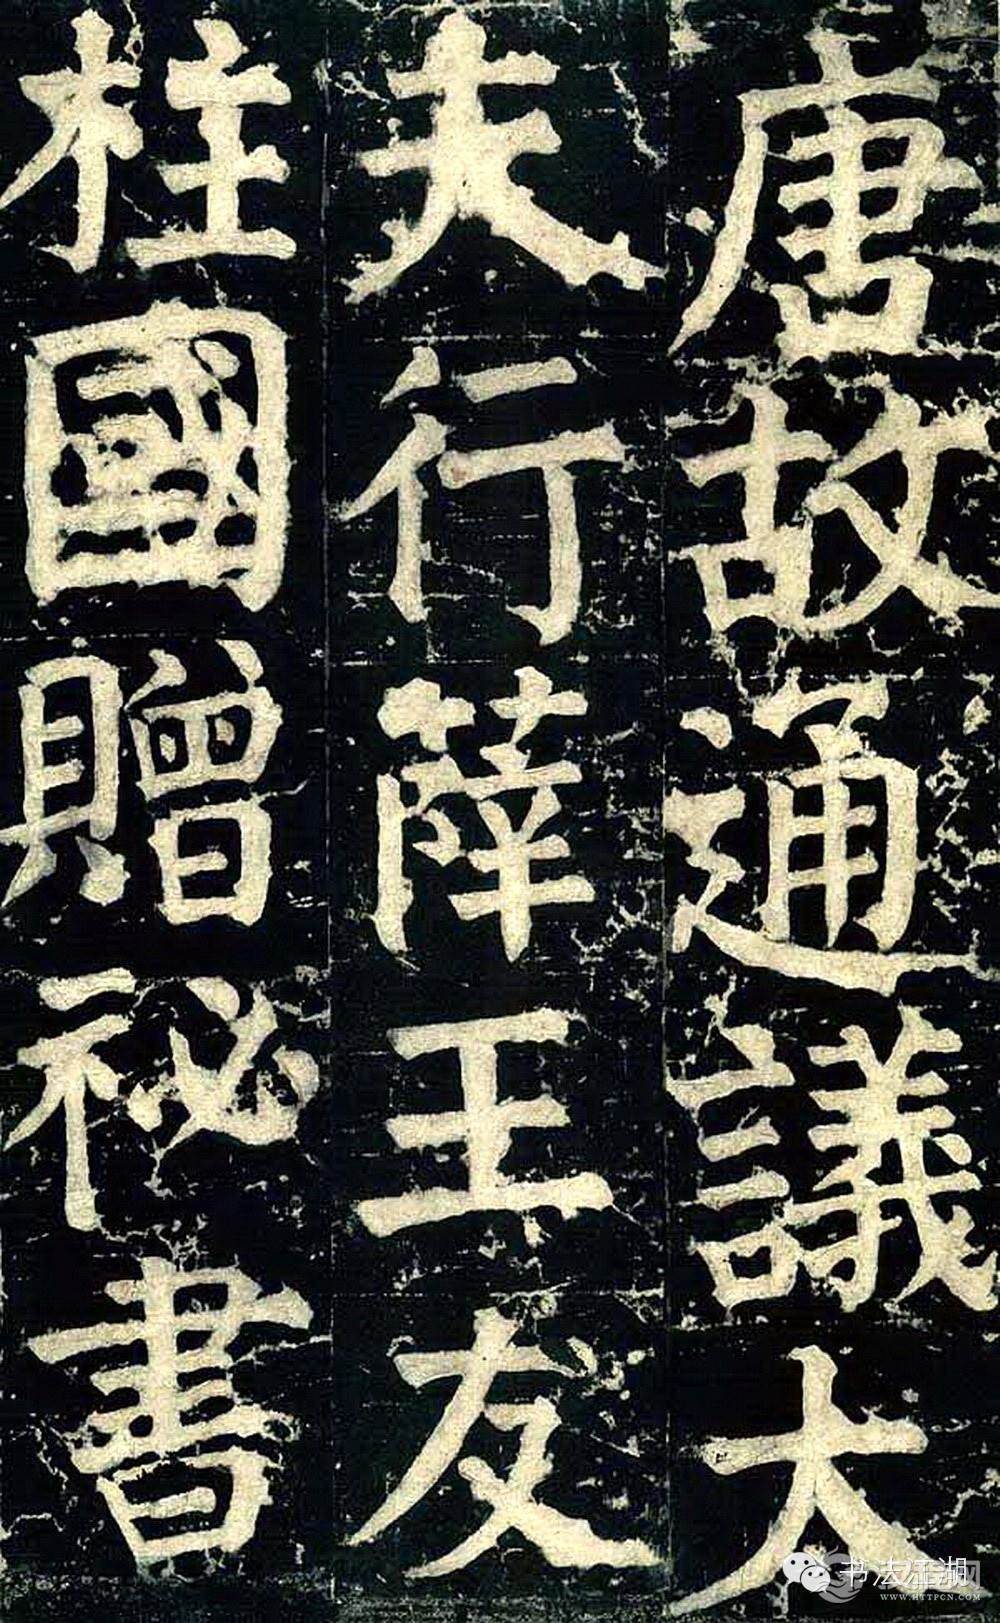 唐故通議大
夫行薛王友
柱國贈祕書
书法江湖
WWW.HTTPCN.COM